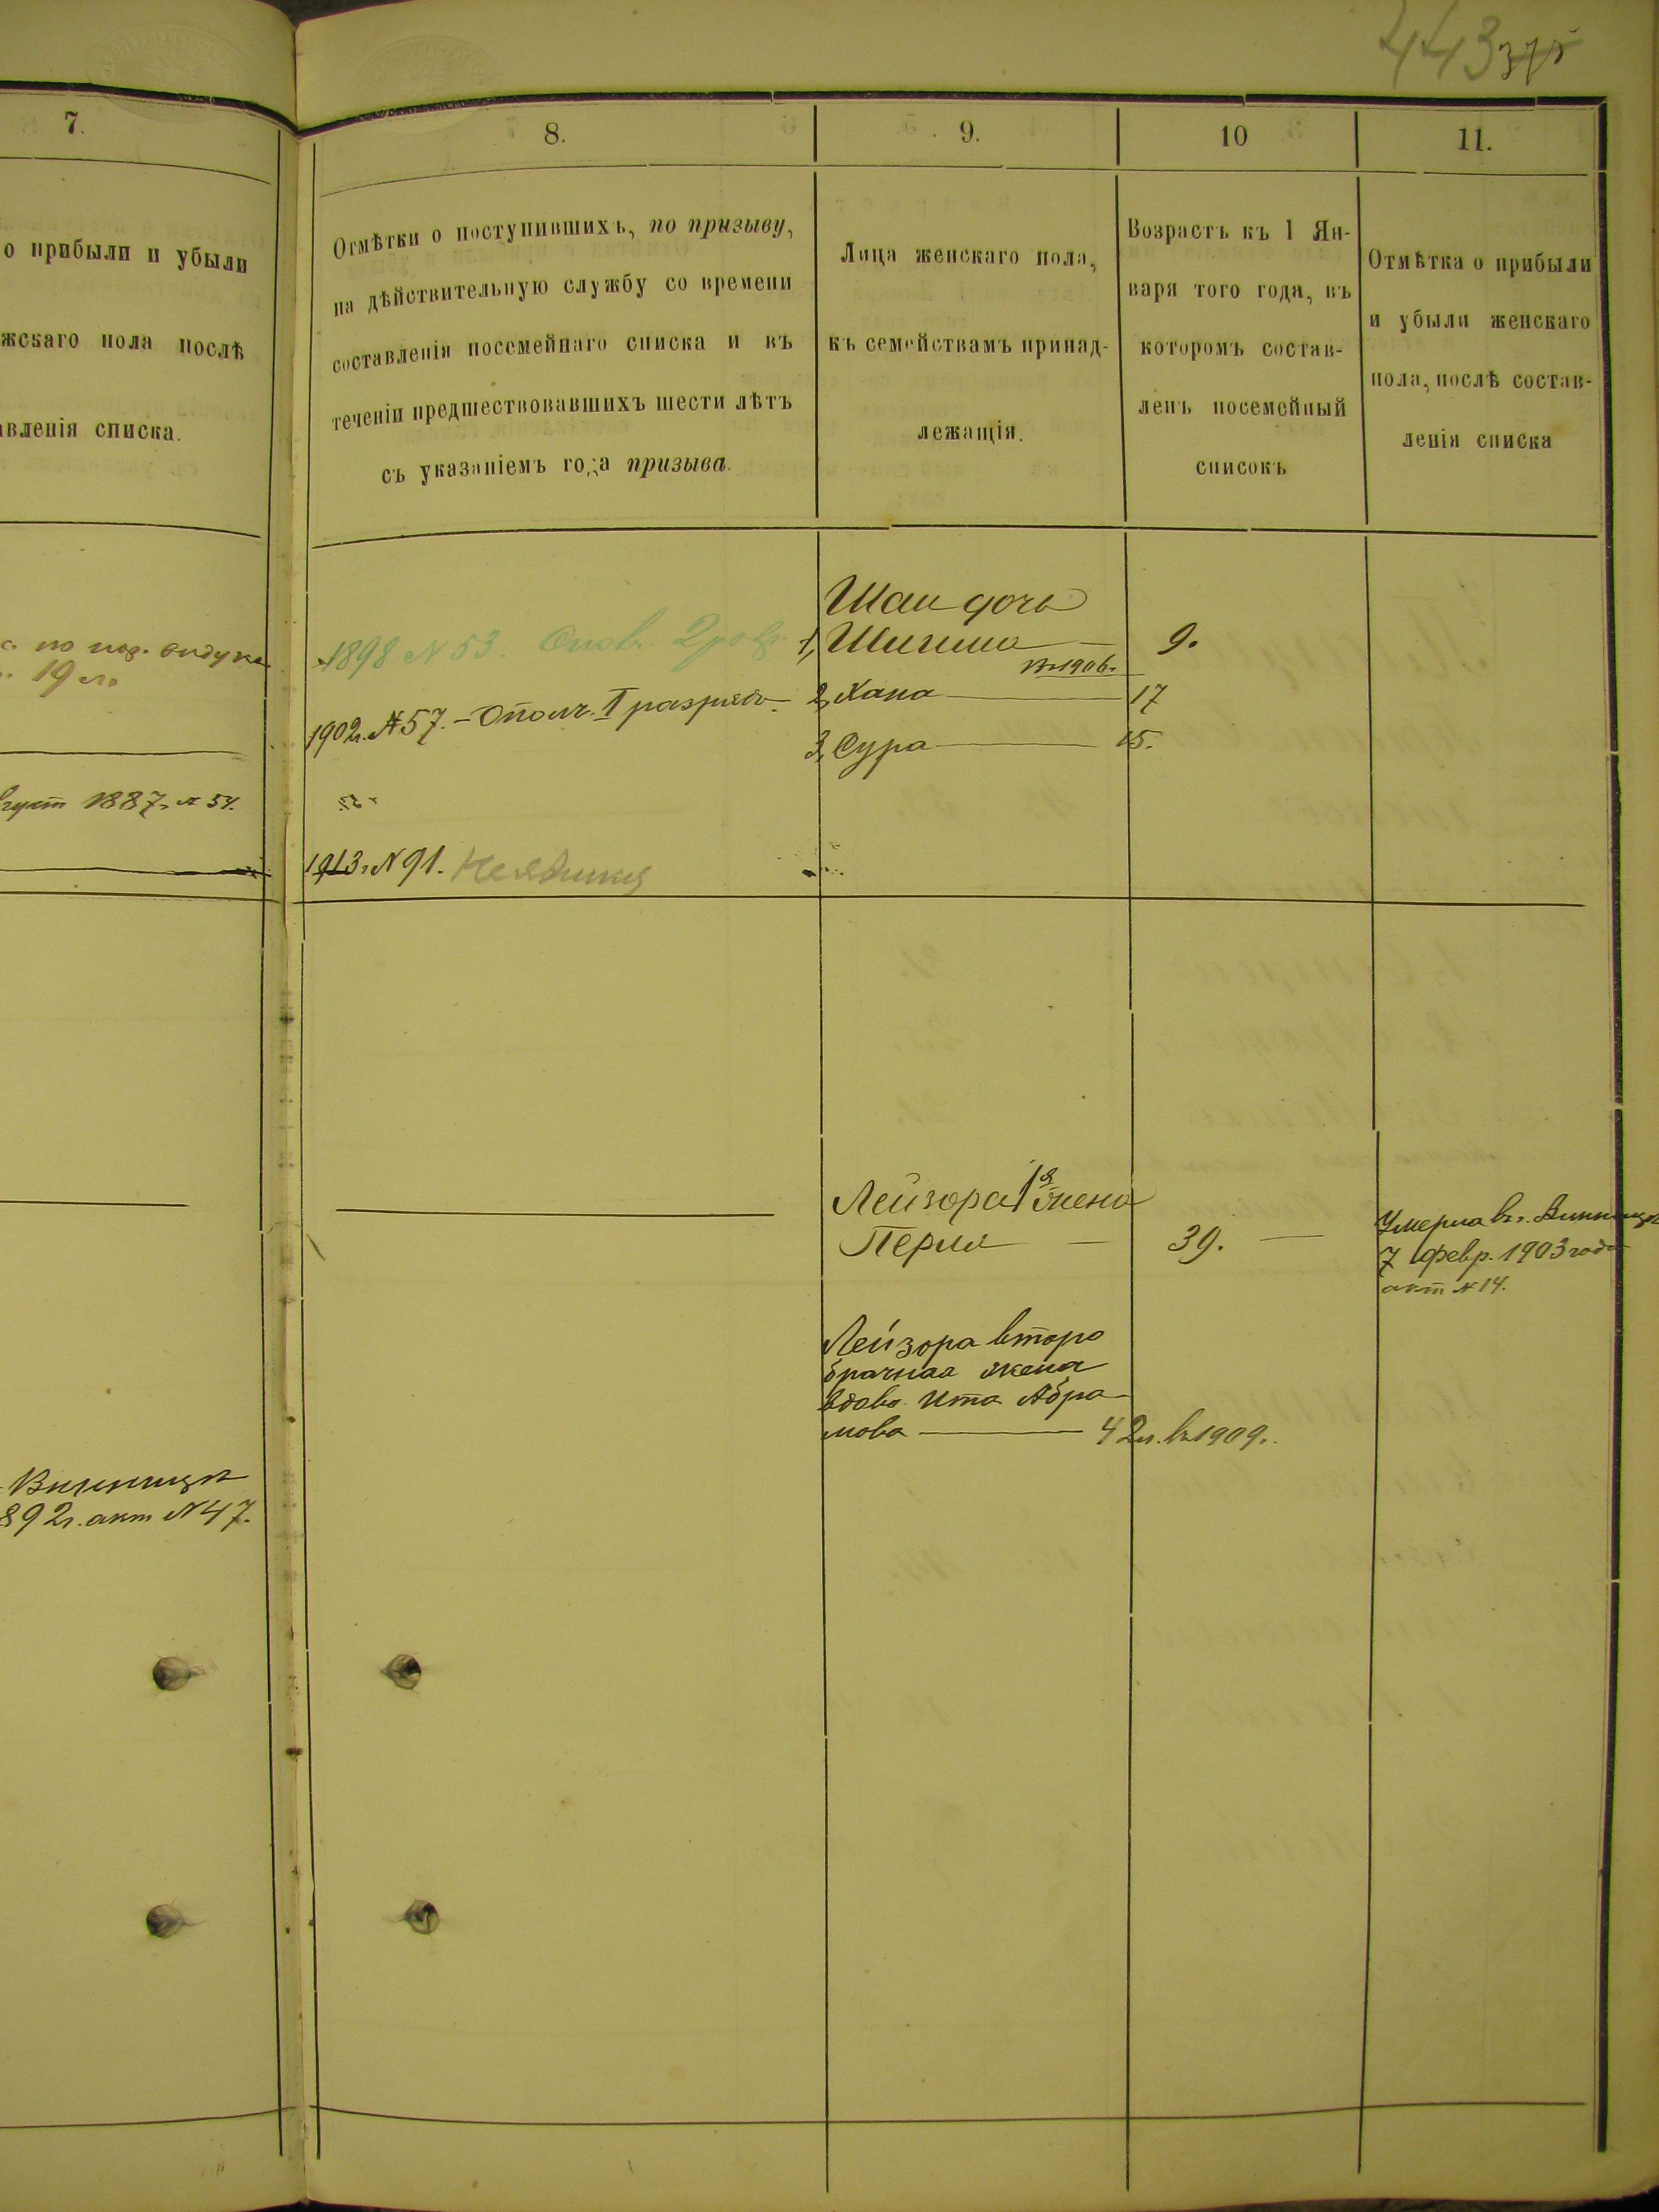 443 375
7.
о прибыли и убыли
жскаго пола послѣ
авленія списка.
19 л.
августъ 1887 г. № 54.
Винницѣ
892 г. акт № 47.
8.
Отмѣтки о поступившихъ, по призыву,
на дѣйствительную службу со времени
составленія посемейнаго списка и въ
теченіи предшествовавшихъ шести лѣтъ
съ указаніемъ года призыва.
1898 № 53. 2 разр.
1902 г. № 57. – Ополч. I разряда
1913 г. № 91. Неявился
9.
Лица женскаго пола,
къ семействамъ принад-
лежащія.
дочь
1,
въ 1906 г.
2, Хана
3, Сура
Лейзора 1я жена
Перля
Лейзора второ
брачная жена
вдова Ита Абра-
мова
10
Возрастъ къ 1 Ян-
варя того года, въ
которомъ состав-
ленъ посемейный
списокъ
9.
17
15.
39.
42 л. въ 1909 г.
11.
Отмѣтка о прибыли
и убыли женскаго
пола, послѣ состав-
ленія списка
Умерла въ г. Винницѣ
7 февр. 1903 года
акт № 14.